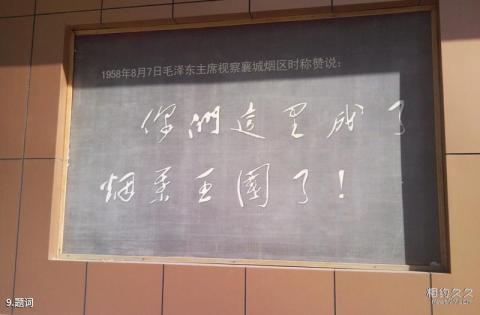 1958年8月7日毛泽东主席视察襄城烟区时称赞说：
你們這里成了
烟葉王國了！
9.题词
相约久久